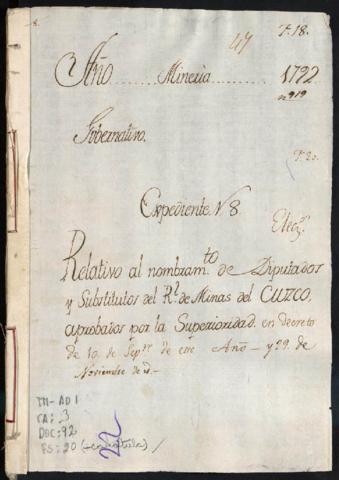 47 Fs. 18.
Año Mineria 1792
n° 919
Gubernativo.
Fs. 20.
Expediente N 8
Elecs.
Relativo al nombramto. de Diputados
y Substitutos del Rl. de Minas del CUZCO,
aprobados por la Superioridad en decreto
de 10. de Septre. de este Año - y 29. de
Noviembre de id.-
TM-AD1
CA: 3
DOC: 92
FS: 20 (+carátula)
22